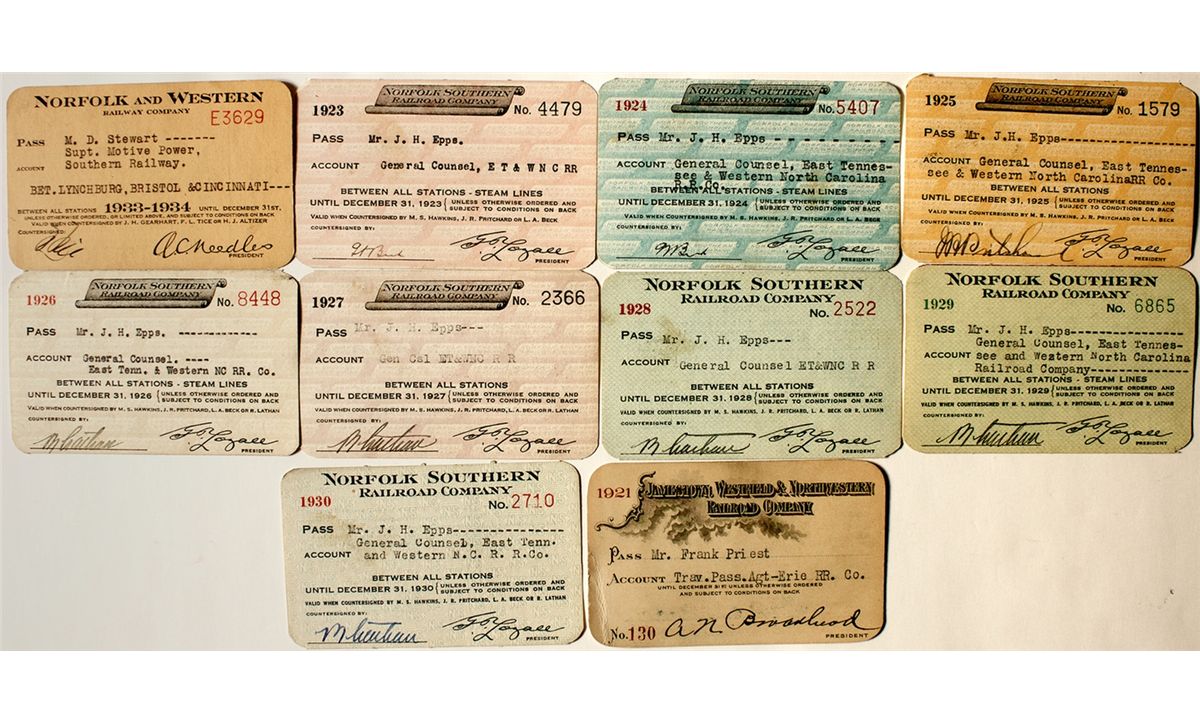 NORFOLK AND WESTERN
RAILWAY COMPANY
E3629
PASS M. D. Stewart -------
Supt. Motive Power,
ACCOUNT Southern Railway.
BET.LYNCHBURG,BRISTOL &CINCINNATI----
BETWEEN ALL STATIONS 1933-1934 UNTIL DECEMBER 31ST,
UNLESS OTHERWISE ORDERED, OR LIMITED ABOVE, AND SUBJECT TO CONDITIONS ON BACK
VALID WHEN COUNTERSIGNED BY J. H. GEARHART, F. L. TICE OR H. J. ALTIZER
COUNTERSIGNED:
A.C. Needles
PRESIDENT
1923 NORFOLK SOUTHERN
RAILROAD COMPANY No. 4479
PASS Mr. J. H. Epps.
ACCOUNT General Counsel, E T & W N C RR
BETWEEN ALL STATIONS - STEAM LINES
UNTIL DECEMBER 31, 1923 { UNLESS OTHERWISE ORDERED AND
SUBJECT TO CONDITIONS ON BACK
VALID WHEN COUNTERSIGNED BY M. S. HAWKINS, J. R. PRITCHARD OR L. A. BECK
COUNTERSIGNED BY:
PRESIDENT
1924 NORFOLK SOUTHERN
RAILROAD COMPANY No. 5407
PASS Mr. J. H. Epps - - - - - - - - - -
ACCOUNT General Counsel, East Tennes-
see & Western North Carolina
R.R.Co.
BETWEEN ALL STATIONS - STEAM LINES
UNTIL DECEMBER 31, 1924 { UNLESS OTHERWISE ORDERED AND
SUBJECT TO CONDITIONS ON BACK
VALID WHEN COUNTERSIGNED BY M. S. HAWKINS, J. R. PRITCHARD OR L. A. BECK
COUNTERSIGNED BY:
PRESIDENT
1925 NORFOLK SOUTHERN
RAILROAD COMPANY No. 1579
PASS Mr. J.H. Epps---------------
ACCOUNT General Counsel, East Tennes-
see & Western North CarolinaRR Co.
BETWEEN ALL STATIONS - STEAM LINES
UNTIL DECEMBER 31, 1925 { UNLESS OTHERWISE ORDERED AND
SUBJECT TO CONDITIONS ON BACK
VALID WHEN COUNTERSIGNED BY M. S. HAWKINS, J. R. PRITCHARD OR L. A. BECK
COUNTERSIGNED BY:
PRESIDENT
1926 NORFOLK SOUTHERN
RAILROAD COMPANY No. 8448
PASS Mr. J. H. Epps. -------------
ACCOUNT General Counsel. ----
East Tenn. & Western NC RR. Co.
BETWEEN ALL STATIONS - STEAM LINES
UNTIL DECEMBER 31, 1926 { UNLESS OTHERWISE ORDERED AND
SUBJECT TO CONDITIONS ON BACK
VALID WHEN COUNTERSIGNED BY M. S. HAWKINS, J. R. PRITCHARD, L. A. BECK OR R. LATHAN
COUNTERSIGNED BY:
PRESIDENT
1927 NORFOLK SOUTHERN
RAILROAD COMPANY No. 2366
PASS Mr. J. H. Epps---
ACCOUNT Gen Csl ET&WNC R R
BETWEEN ALL STATIONS - STEAM LINES
UNTIL DECEMBER 31, 1927 { UNLESS OTHERWISE ORDERED AND
SUBJECT TO CONDITIONS ON BACK
VALID WHEN COUNTERSIGNED BY M. S. HAWKINS, J. R. PRITCHARD, L. A. BECK OR R. LATHAN
COUNTERSIGNED BY:
PRESIDENT
NORFOLK SOUTHERN
RAILROAD COMPANY
1928 No. 2522
PASS Mr. J. H. Epps---
ACCOUNT General Counsel ET&WNC R R
BETWEEN ALL STATIONS - STEAM LINES
UNTIL DECEMBER 31, 1928 { UNLESS OTHERWISE ORDERED AND
SUBJECT TO CONDITIONS ON BACK
VALID WHEN COUNTERSIGNED BY M. S. HAWKINS, J. R. PRITCHARD, L. A. BECK OR R. LATHAN
COUNTERSIGNED BY:
PRESIDENT
NORFOLK SOUTHERN
RAILROAD COMPANY
1929 No. 6865
PASS Mr. J. H. Epps----------------
General Counsel, East Tennes-
ACCOUNT see and Western North Carolina
Railroad Company-------------
BETWEEN ALL STATIONS - STEAM LINES
UNTIL DECEMBER 31, 1929 { UNLESS OTHERWISE ORDERED AND
SUBJECT TO CONDITIONS ON BACK
VALID WHEN COUNTERSIGNED BY M. S. HAWKINS, J. R. PRITCHARD, L. A. BECK OR R. LATHAN
COUNTERSIGNED BY:
PRESIDENT
NORFOLK SOUTHERN
RAILROAD COMPANY
1930 No. 2710
PASS Mr. J. H. Epps---------------
General Counsel, East Tenn.
ACCOUNT and Western N.C. R. R.Co.
BETWEEN ALL STATIONS
UNTIL DECEMBER 31, 1930 { UNLESS OTHERWISE ORDERED AND
SUBJECT TO CONDITIONS ON BACK
VALID WHEN COUNTERSIGNED BY M. S. HAWKINS, J. R. PRITCHARD, L. A. BECK OR R. LATHAN
COUNTERSIGNED BY:
PRESIDENT
1921 JAMESTOWN, WESTFIELD & NORTHWESTERN
RAILROAD COMPANY
PASS Mr. Frank Priest
ACCOUNT Trav.Pass.Agt-Erie RR. Co.
UNTIL DECEMBER 31ST UNLESS OTHERWISE ORDERED
AND SUBJECT TO CONDITIONS ON BACK
No.130 A.N. Broadhead
PRESIDENT